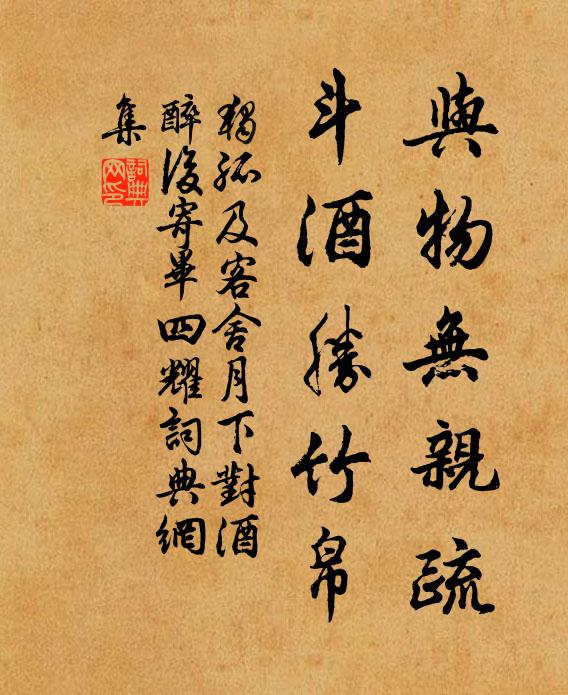 與物無親疏
斗酒勝竹帛
獨孤及客舍月下對酒
醉後寄畢四耀詞典網
集
詞典網印